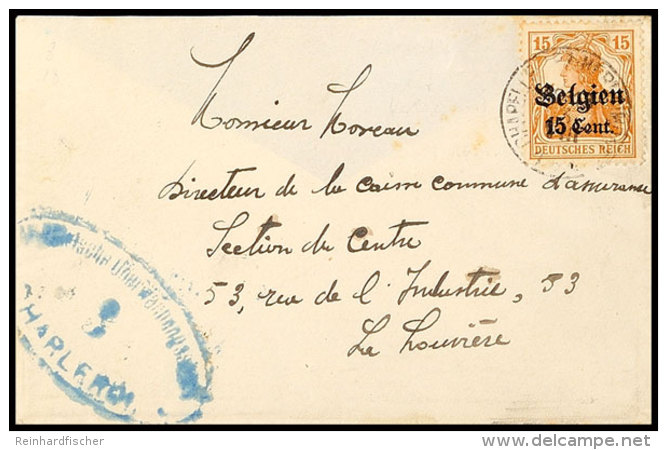 15 15
Belgien
15 Cent.
DEUTSCHES REICH
Monsieur Moreau
Directeur de la caisse commune d'assurance
Section du Centre
53, rue de l'Industrie, 53
La Louvière
HARLEROI
Reinhardfischer
delcampe.net